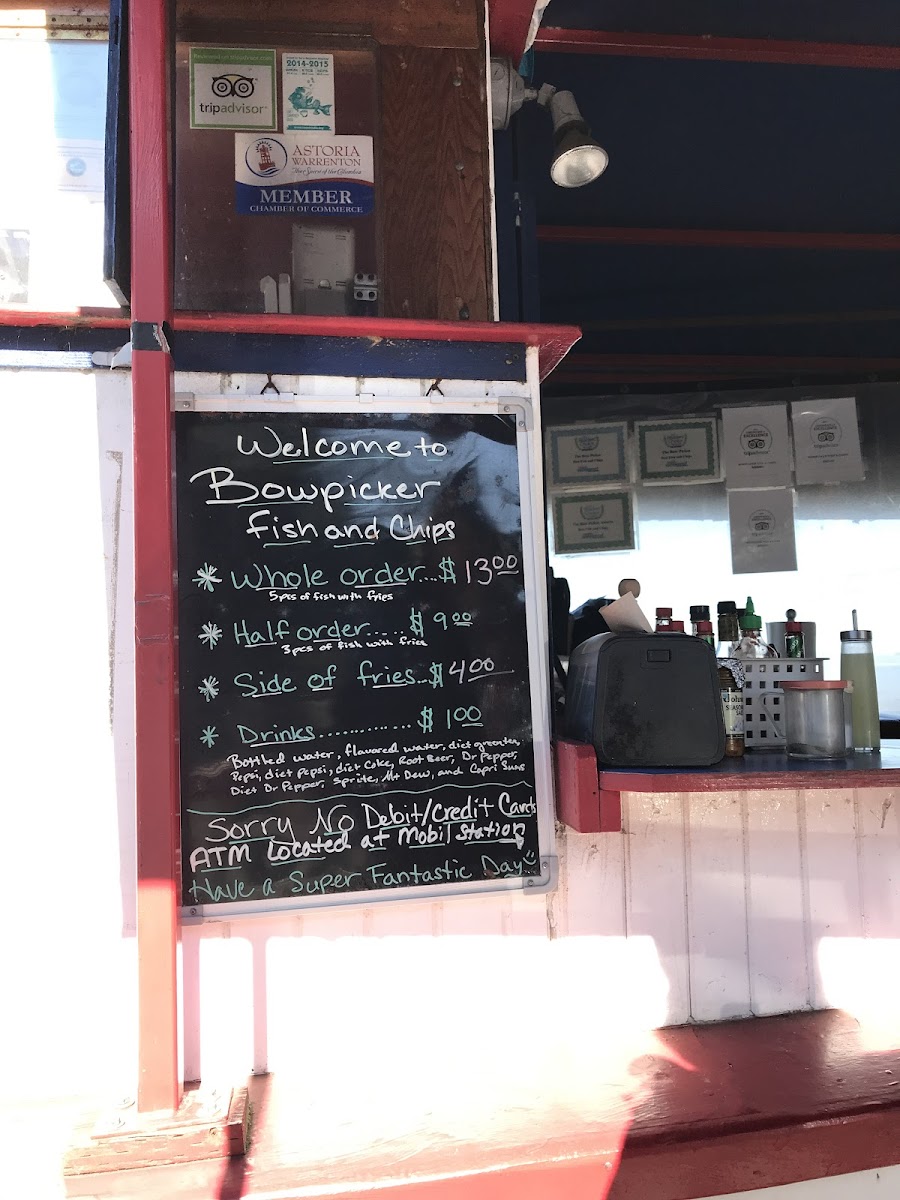 tripadvisor
2014-2015
ASTORIA
WARRENTON
MEMBER
CHAMBER OF COMMERCE
Welcome to
Bowpicker
fish and Chips
* Whole order...$ 13.00
5pcs of fish with fries
* Half order.....$ 9.00
3pcs of fish with fries
* Side of fries..$ 4.00
* Drinks..............$ 1.00
Bottled water, flavored water, diet green tea,
Pepsi, diet pepsi, diet Coke, Root Beer, Dr Pepper,
Diet Dr Pepper, Sprite, Mt Dew, and Capri Suns
Sorry No Debit/Credit Cards
ATM Located at Mobil station
Have a Super Fantastic Day